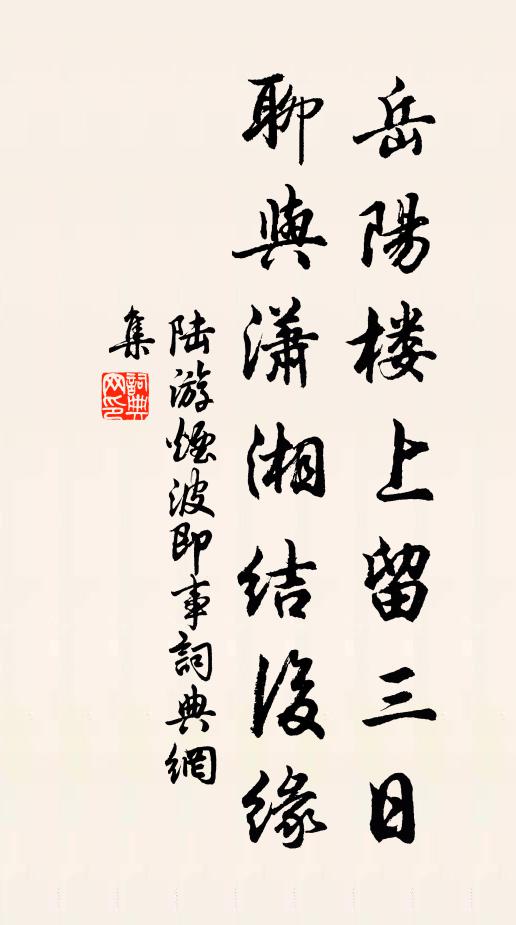 岳陽楼上留三日
聊與瀟湘結後緣
陆游煙波即事詞典網
集
詞典
网印